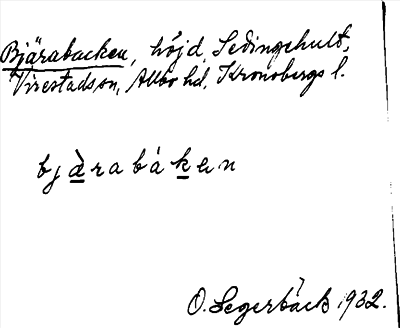 Bjärabacken, höjd, Sedingehult,
Virestad sn, Allbo hd, Kronobergs l.
bjàrabáken
O. Segerbäck 1932.